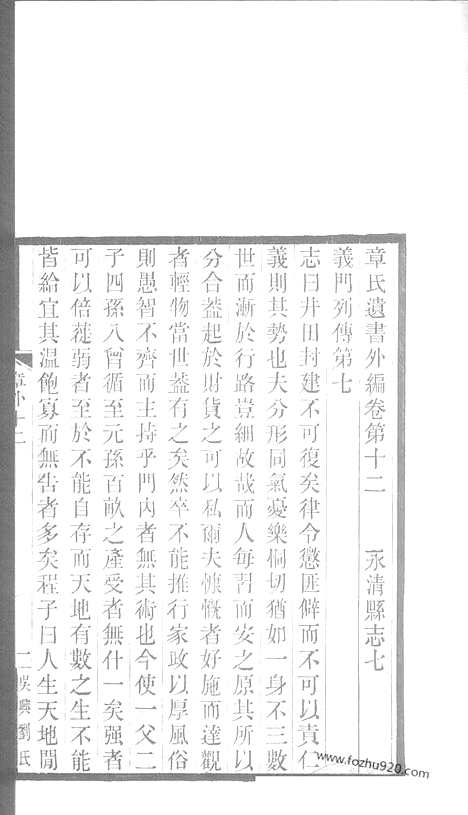 章氏遺書外編卷第十二　　永清縣志七
義門列傳第七
志曰井田封建不可復矣律令懲匪僻而不可以責仁
義則其勢也夫分形同氣憂樂侗切猶如一身不三數
世而漸於行路豈細故哉而人每習而安之原其所以
分合蓋起於財貨之可以私爾夫慷慨者好施而達觀
者輕物當世蓋有之矣然卒不能推行家政以厚風俗
則愚智不齊而主持乎門內者無其術也今使一父二
子四孫八曾循至元孫百畝之產受者無什一矣強者
可以倍蓰弱者至於不能自存而天地有數之生不能
皆給宜其溫飽寡而無告者多矣程子曰人生天地閒
章外十二
一 吳興劉氏
www.fozhu920.com